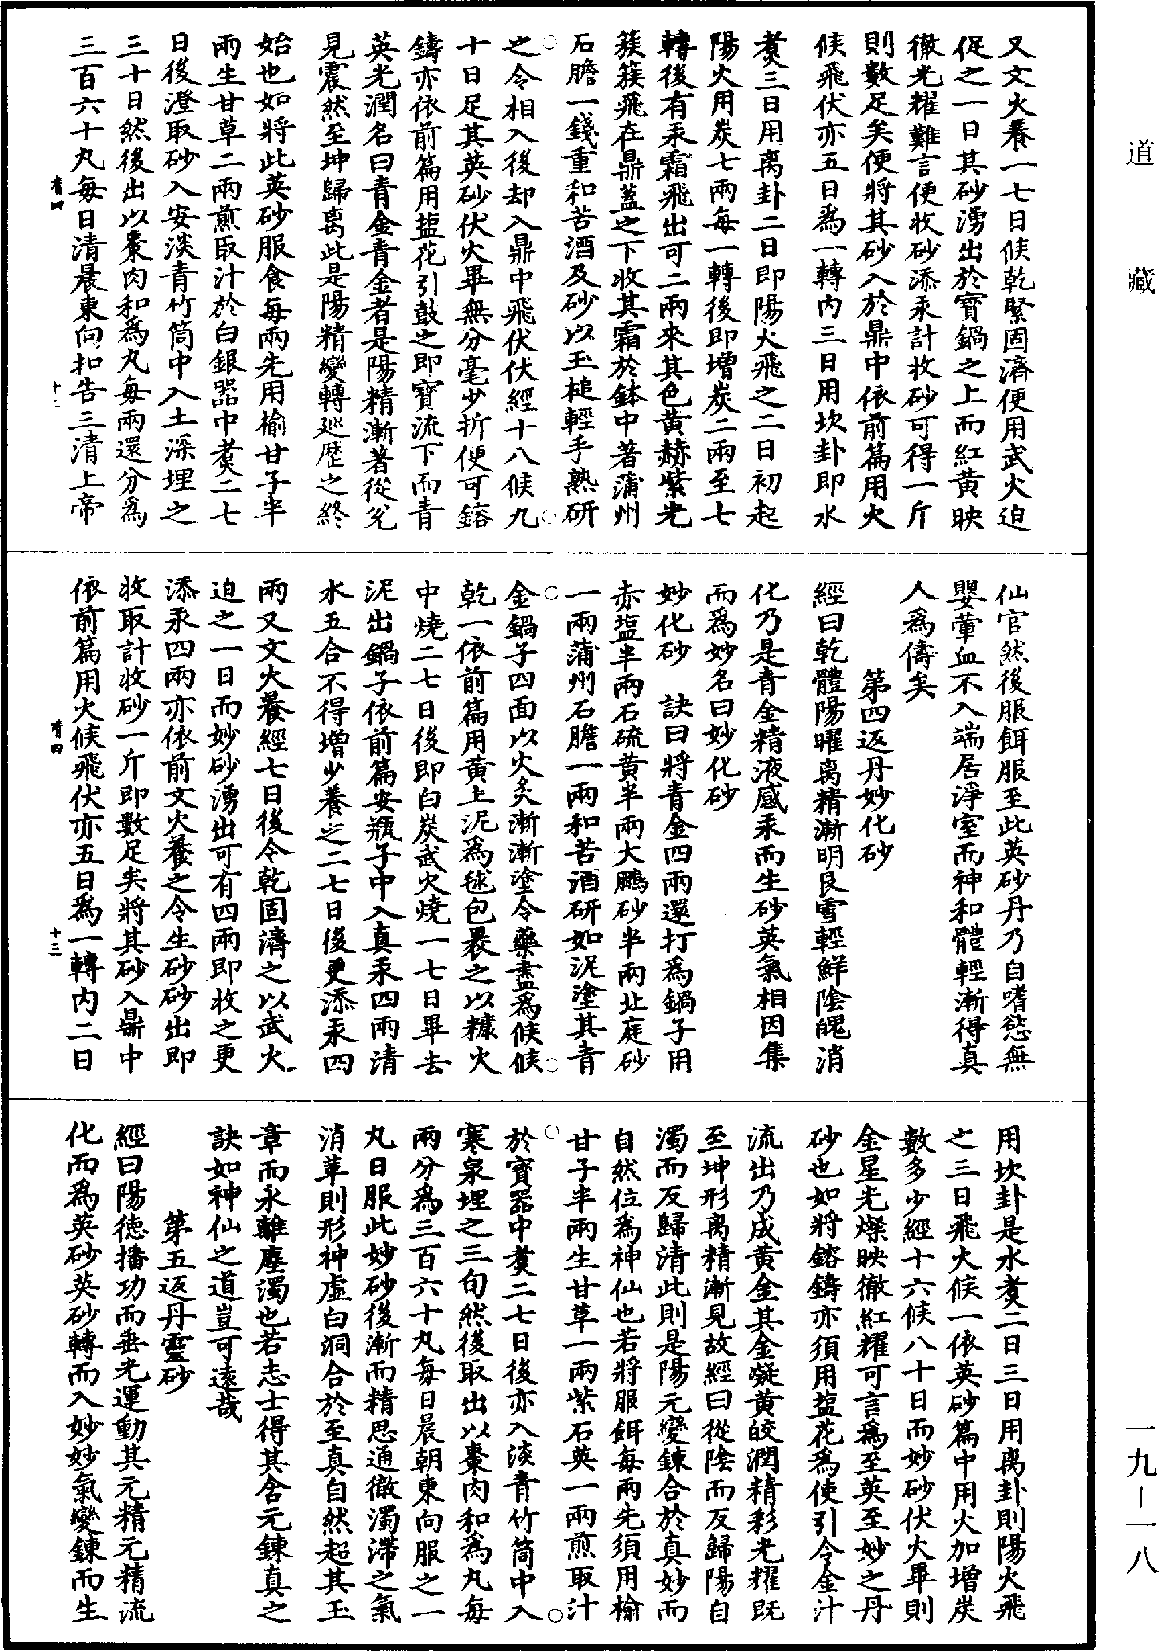 道藏
又文火養一七日候乾緊固濟便用武火迫
促之一日其砂湧出於寶鍋之上而紅黄映
徹光耀難言便收砂添汞計收砂可得一斤
則數足矣便將其砂入於鼎中依前篇用火
候飛伏亦五日爲一轉内三日用坎卦即水
煑三日用离卦二日即陽火飛之二日初起
陽火用炭七兩每一轉後即增炭二兩至七
轉後有汞霜飛出可二兩來其色黄赫紫光
簇簇飛在鼎蓋之下收其霜於鉢中著蒲州
石膽一錢重和苦酒及砂以玉槌輕手熟研
之令相入後却入鼎中飛伏伏經十八候九
十日足其英砂伏火畢無分毫少折便可鎔
鑄亦依前篇用盐花引鼓之即寶流下而青
英光潤名曰青金青金者是陽精漸著從兊
見震然至坤歸离此是陽精變轉廵歷之終
始也如將此英砂服食每兩先用榆甘子半
兩生甘草二兩煎取汁於白銀器中煑二七
日後澄取砂入安淡青竹筒中入土深埋之
三十日然後出以棗肉和爲丸每兩還分爲
三百六十丸每日清晨東向扣告三清上帝
仙官然後服餌服至此英砂丹乃自嗜慾無
嬰葷血不入端居淨室而神和體輕漸得真
人爲儔矣
第四返丹妙化砂
經曰乾體陽曜离精漸明艮雪輕鮮陰魄消
化乃是青金精液感汞而生砂英氣相因集
而爲妙名曰妙化砂
妙化砂　訣曰將青金四兩還打爲鍋子用
赤塩半兩石硫黄半兩大鵬砂半兩北庭砂
一兩蒲州石膽一兩和苦酒研如泥塗其青
金鍋子四面以火炙漸漸塗令藥盡爲候候
乾一依前篇用黄土泥爲毬包裹之以糠火
中燒二七日後即白炭武火燒一七日畢去
泥出鍋子依前篇安瓶子中入真汞四兩清
水五合不得增少養之二七日後更添汞四
兩又文火養經七日後令乾固濟之以武火
迫之一日而妙砂湧出可有四兩即收之更
添汞四兩亦依前文火養之令生砂砂出即
收取計收砂一斤即數足矣將其砂入鼎中
依前篇用火候飛伏亦五日爲一轉内二日
用坎卦是水煑二日三日用离卦則陽火飛
之三日飛火候一依英砂篇中用火加增炭
數多少經十六候八十日而妙砂伏火畢則
金星光燦映徹紅耀可言爲至英至妙之丹
砂也如將鎔鑄亦須用盐花爲使引令金汁
流出乃成黄金其金凝黄皎潤精彩光耀既
至坤形离精漸見故經曰從陰而反歸陽自
濁而反歸清此則是陽元變鍊合於真妙而
自然位爲神仙也若將服餌每兩先須用榆
甘子半兩生甘草一兩紫石英一兩煎取汁
於寶器中煑二七日後亦入淡青竹筒中入
寒泉埋之三旬然後取出以棗肉和爲丸每
兩分爲三百六十丸每日晨朝東向服之一
丸日服此妙砂後漸而精思通徹濁滯之氣
消革則形神虛白洞合於至真自然超其玉
章而永離塵濁也若志士得其含元鍊真之
訣如神仙之道豈可遠哉
第五返丹靈砂
經曰陽德播功而垂光運動其元精元精流
化而爲英砂英砂轉而入妙妙氣變鍊而生
十二
十三
一九－一八